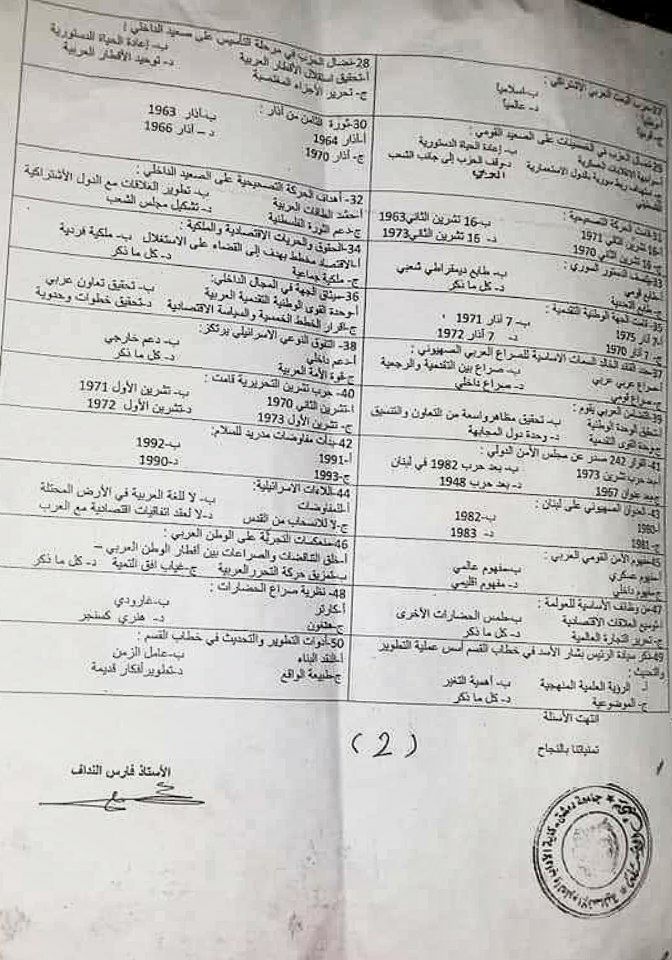 28-نضال الحزب في مرحلة التأسيس على صعيد الداخلي :
أ-تحقيق استقلال الأقطار العربية ب- إعادة الحياة الدستورية
ج- تحرير الأجزاء المغتصبة د- توحيد الأقطار العربية
البعث العربي الاشتراكي :
ب-اسلامياً
د- عالمياً
30-ثورة الثامن من آذار :
أ-آذار 1964 ب-آذار 1963
ج- آذار 1970 د – آذار 1966
نضال الحزب في الخمسينات على الصعيد القومي :
ب- إعادة الحياة الدستورية
ربط سورية بالدول الاستعمارية د-وقف الحزب إلى جانب الشعب
العربي
32- أهداف الحركة التصحيحية على الصعيد الداخلي :
أ-حشد الطاقات العربية ب- تطوير العلاقات مع الدول الأشتراكية
ج-دعم الثورة الفلسطينية د- تشكيل مجلس الشعب
قامت الحركة التصحيحية :
16 تشرين الثاني 1971 ب-16 تشرين الثاني1963
16 تشرين الثاني 1970 د- 16 تشرين الثاني1973
34-الحقوق والحريات الاقتصادية والملكية :
أ-الاقتصاد مخطط يهدف إلى القضاء على الاستغلال ب- ملكية فردية
ج- ملكية جماعية د- كل ما ذكر
الدستور السوري :
طابع قومي ب- طابع ديمقراطي شعبي
د- كل ما ذكر
36-ميثاق الجبهة في المجال الداخلي:
أ-وحدة القوى الوطنية التقدمية العربية ب- تحقيق تعاون عرابي
ج-اقرار الخطط الخمسية والسياسة الاقتصادية د-تحقيق خطوات وحدوية
35-قامت الجبهة الوطنية التقدمية :
أ-7 آذار 1975 ب- 7 آذار 1971
ج- 7 آذار 1970 د- 7 آذار 1972
38- التفوق النوعي الاسرائيلي يرتكز:
أ-دعم داخلي ب- دعم خارجي
ج-قوة الأمة العربية د- كل ما ذكر
37-حدد القائد الخالد السمات الاساسية للصراع العربي الصهيوني :
أ-صراع عربي عربي ب- صراع بين التقدمية والرجعية
ج- صراع قومي د- صراع داخلي
40- حرب تشرين التحريرية قامت :
أ-تشرين الثاني 1970 ب- تشرين الأول 1971
ج- تشرين الأول 1973 د-تشرين الأول 1972
39-التضامن العربي يقوم :
أ-تحقيق الوحدة الوطنية ب- تحقيق مظاهرواسعة من التعاون والتنسيق
ج-وحدة القوى التقدمية د- وحدة دول المجابهة
42-بدأت مفاوضات مدريد للسلام:
أ-1991 ب-1992
ج-1993 د-1990
41-القرار 242 صدر عن مجلس الأمن الدولي :
أ-بعد حرب تشرين 1973 ب- بعد حرب 1982 في لبنان
ج-بعد عدوان 1967 د- بعد حرب 1948
44-اللاءات الاسرائيلية:
أ-لا للمفاوضات ب- لا للغة العربية في الأرض المحتلة
ج-لا للانسحاب من القدس د-لا لعقد اتفاقيات اقتصادية مع العرب
43- العدوان الصهيوني على لبنان :
أ-1980 ب-1982
ج-1981 د- 1983
التجزئة على الوطن العربي :
أ-خلق التناقضات والصراعات بين أقطار الوطن العربي –
ب-تمزيق حركة التحرر العربية ج-غياب افق التمية د- كل ما ذكر
45-مفهوم الأمن القومي العربي :
أ-مفهوم عسكري ب-مفهوم عالمي
ج-مفهوم داخلي د- مفهوم اقليمي
48- نظرية صراع الحضارات :
أ-كارتر ب-غارودي
ج-هنتغتون د- هنري كسنجر
47-من وظائف الأساسية للعولمة :
أ-توسيع العلاقات الاقتصادية ب- طمس الحضارات الأخرى
ج-تحرير التجارة العالمية د- كل ما ذكر
50-أدوات التطوير والتحديث في خطاب القسم :
أ-النقد البناء ب-عامل الزمن
ج-طبيعة الواقع د-تطويرأفكار قديمة
49-ذكر سيادة الرئيس بشار الأسد في خطاب القسم أسس عملية التطوير
والتحديث :
أ- الرؤية العلمية المنهجية ب- أهمية التغير
ج- الموضوعية د- كل ما ذكر
انتهت الأسئلة
تمنياتنا بالنجاح
(2)
الأستاذ فارس النداف
جامعة دمشق - كلية الآداب والعلوم الإنسانية